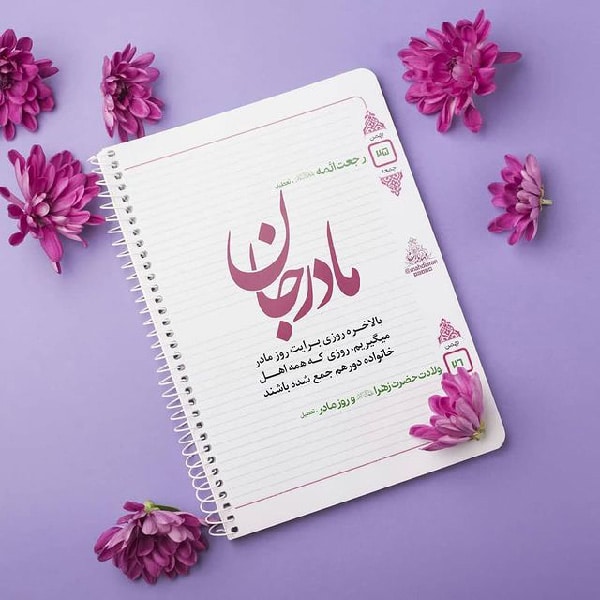 بهمن
۲۵
جمعه
رجعت ائمه
تعطیل
مادر جان
بالاخره روزی برایت روز مادر
میگیریم، روزی که همه اهل
خانواده دور هم جمع شده باشند
@mahdiaran
بهمن
۲۶
ولادت حضرت زهرا و روز مادر
تعطیل